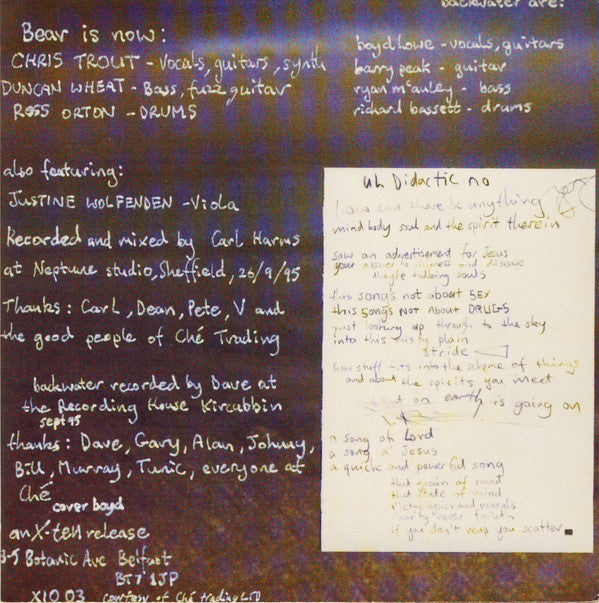 backwater are:
Bear is now:
CHRIS TROUT - Vocals, guitars, synth
DUNCAN WHEAT - Bass, fuzz guitar
ROSS ORTON - DRUMS
boyd lowe - vocals, guitars
barry peak - guitar
ryan mcauley - bass
richard bassett - drums
also featuring:
JUSTINE WOLFENDEN - Viola
Recorded and mixed by Carl Harms
at Neptune studio, Sheffield, 26/9/95
Thanks: Carl, Dean, Pete, V and
the good people of Ché Trading
backwater recorded by Dave at
the Recording House Kircubbin
sept 95
thanks: Dave, Gary, Alan, Johnny,
Bill, Murray, Tunic, everyone at
Ché
cover boyd
an X-tell release
3-5 Botanic Ave Belfast
BT7 1JP
X10.03 courtesy of Ché trading LTD
uh Didactic no
how can there be anything
mind body soul and the spirit therein
saw an advertisement for Jesus
your answer to sickness and disease
they're talking souls
this songs not about SEX
this songs Not About DRUGS
just looking up through to the sky
into this misty plain
stride
how stuff fits into the scheme of things
and about the spirits you meet
what on earth is going on
a song of Lord
a song of Jesus
a quick and powerful song
that grain of sand
that state of mind
metaphysics and morals
if you don't reap you scatter